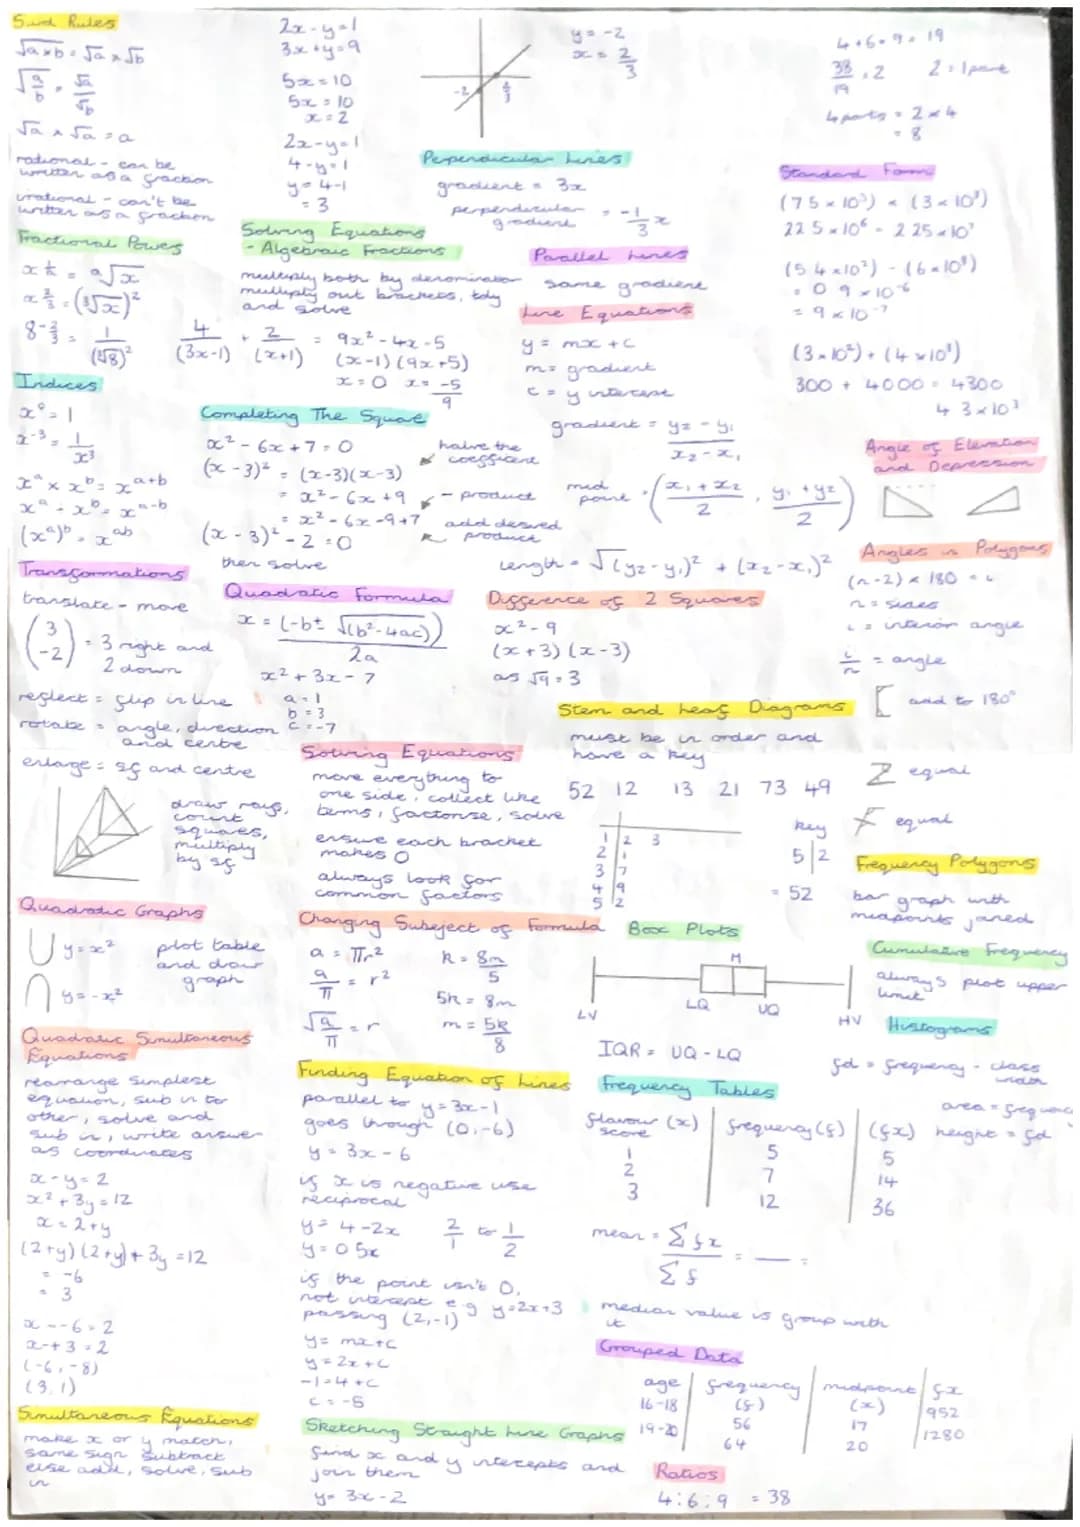 Surd Rules
√a×b = √a × √b
√a/b = √a/√b
√a × √a = a
rational - can be
written as a fraction
irrational - can't be
written as a fraction
Fractional Powers
x^1/a = ᵃ√x
x^2/3 = (³√x)²
8^-2/3 = 1/(³√8)²
Indices
x⁰ = 1
x⁻³ = 1/x³
xᵃ × xᵇ = xᵃ⁺ᵇ
xᵃ ÷ xᵇ = xᵃ⁻ᵇ
(xᵃ)ᵇ = xᵃᵇ
Transformations
translate - move
(3 -2) = 3 right and
2 down
reflect = flip in line
rotate = angle, direction
and centre
enlarge = sf and centre
draw rays,
count
squares,
multiply
by sf
Quadratic Graphs
y = x²
y = -x²
plot table
and draw
graph
Quadratic Simultaneous
Equations
rearrange simplest
equation, sub in to
other, solve and
sub in, write answer
as coordinates
x - y = 2
x² + 3y = 12
x = 2 + y
(2+y)(2+y) + 3y = 12
= -6
= 3
x - -6 = 2
x - + 3 = 2
(-6, -8)
(3, 1)
Simultaneous Equations
make x or y match,
same sign subtract
else add, solve, sub
in
2x - y = 1
3x + y = 9
5x = 10
5x = 10
x = 2
2x - y = 1
4 - y = 1
y = 4 - 1
= 3
Solving Equations
- Algebraic Fractions
multiply both by denominator
multiply out brackets, tidy
and solve
4/(3x-1) + 2/(x+1) = 9x² - 4x - 5
(x-1)(9x+5)
x = 0 x = -5/9
Completing The Square
x² - 6x + 7 = 0
(x - 3)² = (x-3)(x-3)
= x² - 6x + 9
= x² - 6x - 9 + 7
(x - 3)² - 2 = 0
then solve
halve the
coefficient
- product
add desired
product
Quadratic Formula
x = (-b ± √(b² - 4ac))/2a
x² + 3x - 7
a = 1
b = 3
c = -7
Solving Equations
move everything to
one side, collect like
terms, factorise, solve
ensure each bracket
makes 0
always look for
common factors
Changing Subeject of Formula
a = πr²
a/π = r²
√a/π = r
k = 8m/5
5k = 8m
m = 5k/8
Finding Equation of Lines
parallel to y = 3x - 1
goes through (0, -6)
y = 3x - 6
if x is negative use
reciprocal
y = 4 - 2x 2/1 to 1/2
y = 0.5x
if the point isn't 0,
not intercept e.g y = 2x + 3
passing (2, -1)
y = mx + c
y = 2x + c
-1 = 4 + c
c = -5
Sketching Straight Line Graphs
find x and y intecepts and
join them
y = 3x - 2
y = -2
x = 2/3
-2
2/3
Perpendicular Lines
gradient = 3x
perpendicular
gradient = -1/3 x
Parallel Lines
same gradient
Line Equations
y = mx + c
m = gradient
c = y intercept
gradient = y₂ - y₁/x₂ - x₁
mid
point = (x₁ + x₂/2, y₁ + y₂/2)
Length = √(y₂ - y₁)² + (x₂ - x₁)²
Difference of 2 Squares
x² - 9
(x + 3)(x - 3)
as √9 = 3
Stem and Leaf Diagrams
must be in order and
have a key
52 12 13 21 73 49
1 | 2 3
2 | 1
3 | 7
4 | 9
5 | 2
key
5 | 2
= 52
Box Plots
M
LV
LQ
UQ
HV
IQR = UQ - LQ
Frequency Tables
flavour (x)
score
frequency (f)
(fx)
1 5 5
2 7 14
3 12 36
mean = Σfx/Σf = — =
median value is group with
it
Grouped Data
age frequency (f) midpoint (x) fx
16-18 56 17 952
19-20 64 20 1280
Ratios
4 : 6 : 9 = 38
4 + 6 + 9 = 19
38/19 = 2 2 = 1 part
4 parts = 2 × 4
= 8
Standard Form
(7.5 × 10⁵) × (3 × 10¹)
22.5 × 10⁶ = 2.25 × 10⁷
(5.4 × 10²) ÷ (6 × 10⁸)
= 0.9 × 10⁻⁶
= 9 × 10⁻⁷
(3 × 10²) + (4 × 10³)
300 + 4000 = 4300
4.3 × 10³
Angle of Elevation
and Depression
Angles in Polygons
(n - 2) × 180 = i
n = sides
i = interior angle
i/n = angle
add to 180°
equal
equal
Frequency Polygons
bar graph with
midpoints joined
Cumulative Frequency
always plot upper
limit
Histograms
fd = frequency ÷ class
width
area = frequency
height = fd